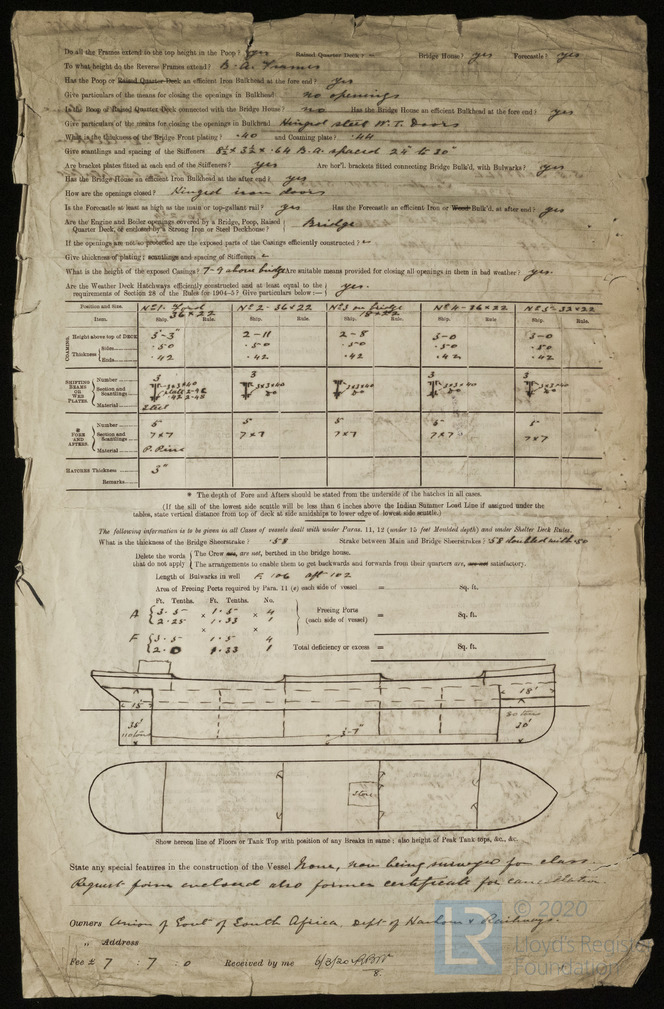 Do all the Frames extend to the top height in the Poop? yes Raised Quarter Deck? - Bridge House? yes Forecastle? yes
To what height do the Reverse Frames extend? B.A. Frames
Has the Poop or Raised Quarter Deck an efficient Iron Bulkhead at the fore end? yes
Give particulars of the means for closing the openings in Bulkhead no openings
Is the Poop or Raised Quarter Deck connected with the Bridge House? no Has the Bridge House an efficient Bulkhead at the fore end? yes
Give particulars of the means for closing the openings in Bulkhead Hinged steel W.T. Doors
What is the thickness of the Bridge Front plating? .40 and Coaming plate? .44
Give scantlings and spacing of the Stiffeners 8½ x 3½ x .64 B.A. spaced 24" to 30"
Are bracket plates fitted at each end of the Stiffeners? yes Are hor'l. brackets fitted connecting Bridge Bulk'd, with Bulwarks? yes
Has the Bridge House an efficient Iron Bulkhead at the after end? yes
How are the openings closed? Hinged iron doors
Is the Forecastle at least as high as the main or top-gallant rail? yes Has the Forecastle an efficient Iron or Wood Bulk'd, at after end? yes
Are the Engine and Boiler openings covered by a Bridge, Poop, Raised
Quarter Deck, or enclosed by a Strong Iron or Steel Deckhouse? Bridge
If the openings are not so protected are the exposed parts of the Casings efficiently constructed?
Give thickness of plating; scantlings and spacing of Stiffeners
What is the height of the exposed Casings? 7-9 above bridge Are suitable means provided for closing all openings in them in bad weather? yes.
Are the Weather Deck Hatchways efficiently constructed and at least equal to the
requirements of Section 28 of the Rules for 1904-5? Give particulars below:— yes.
Position and Size. No 1. Ford 36 x 22 No 2 - 36 x 22 No 3 on bridge 18 x 22 No 4 - 36 x 22 No 5 - 32 x 22
Item. Ship. Rule. Ship. Rule. Ship. Rule. Ship. Rule. Ship. Rule.
COAMING. Height above top of DECK 3'-3" 2-11 2-8 3-0 3-0
Thickness Sides .50 .50 .50 .50 .50
Ends .42 .42 .42 .42 .42
SHIFTING BEAMS OR WEB PLATES. Number 3 3 3 3
Section and Scantlings 3x3x40 3x3x40 3x3x40 3x3x40 3x3x40
Material Steel
* FORE AND AFTERS. Number 5 5 5 5 5
Section and Scantlings 7x7 7x7 7x7 7x7 7x7
Material P. Pine
HATCHES Thickness 3"
Remarks
* The depth of Fore and Afters should be stated from the underside of the hatches in all cases.
(If the sill of the lowest side scuttle will be less than 6 inches above the Indian Summer Load Line if assigned under the
tables, state vertical distance from top of deck at side amidships to lower edge of lowest side scuttle.)
The following information is to be given in all Cases of vessels dealt with under Paras. 11, 12 (under 15 feet Moulded depth) and under Shelter Deck Rules.
What is the thickness of the Bridge Sheerstrake? .58 Strake between Main and Bridge Sheerstrakes? .58 doubled with .50
Delete the words The Crew are, are not, berthed in the bridge house.
that do not apply The arrangements to enable them to get backwards and forwards from their quarters are, are not satisfactory.
Length of Bulwarks in well F. 106 aft 102
Area of Freeing Ports required by Para. 11 (e) each side of vessel = Sq. ft.
Ft. Tenths. Ft. Tenths. No.
A 3.5 x 1.5 x 4 Freeing Ports
2.25 1.33 1 (each side of vessel) = Sq. ft.
x x
F 3.5 1.5 4
2.0 1.33 1 Total deficiency or excess = Sq. ft.
15' 18'
35' 110 tons 3-7" 30 tons 30'
Store
Show hereon line of Floors or Tank Top with position of any Breaks in same; also height of Peak Tank tops, &c., &c.
State any special features in the construction of the Vessel None, now being surveyed for class
Request form enclosed also former certificate for cancellation
Owners Union of Govt of South Africa, Dept of Harbour & Railways.
„ Address
Fee £ 7 : 7 : 0 Received by me 6/3/20
© 2020
LR Lloyd's Register
Foundation